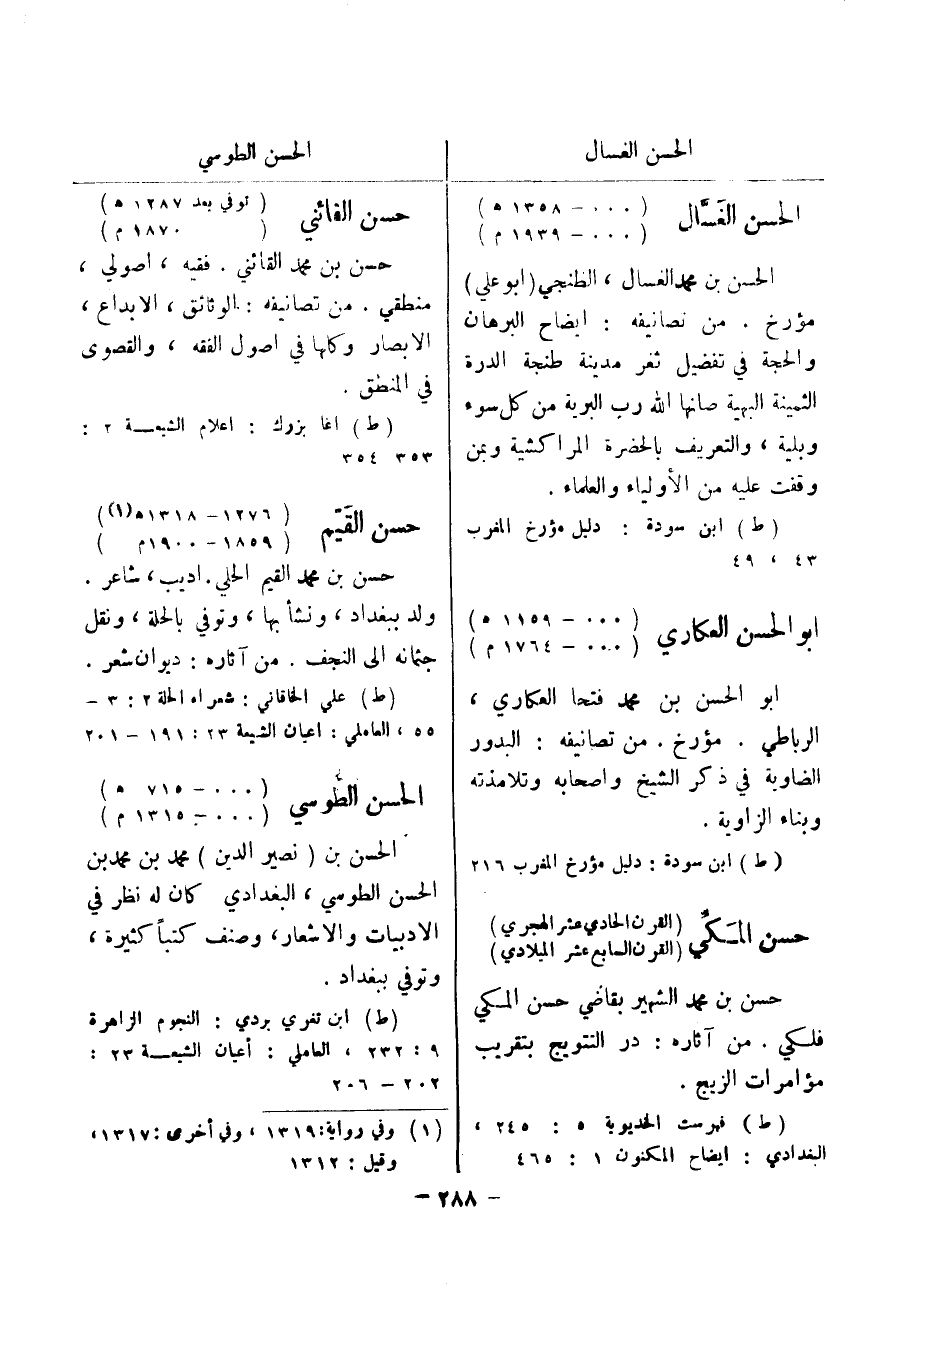 الحسن الغسال
الحسن الغَسَّال
( ٠٠٠ – ١٣٥٨ ه )
( ٠٠٠ – ١٩٣٩ م )
الحسن بن محمد الغسال ، الطنجي (ابو علي)
مؤرخ . من تصانيفه : ايضاح البرهان
والحجة في تفضيل ثغر مدينة طنجة الدرة
الثمينة البهية صانها الله رب البرية من كل سوء
وبلية ، والتعريف بالحضرة المراكشية وبمن
وقفت عليه من الأولياء والعلماء .
( ط ) ابن سودة : دليل مؤرخ المغرب
٤٣ ، ٤٩
ابو الحسن العكاري
( ٠٠٠ – ١١٥٩ ه )
( ٠٠٠ – ١٧٦٤ م )
ابو الحسن بن محمد فتحا العكاري ،
الرباطي . مؤرخ . من تصانيفه : البدور
الضاوية في ذكر الشيخ واصحابه وتلامذته
وبناء الزاوية .
( ط ) ابن سودة : دليل مؤرخ المغرب ٢١٦
حسن المَكِّي
(القرن الحادي عشر الهجري)
(القرن السابع عشر الميلادي)
حسن بن محمد الشهير بقاضي حسن المكي
فلكي . من آثاره : در التتويج بتقريب
مؤامرات الزيج .
( ط ) فهرست الخديوية ٥ : ٢٤٥ ،
البغدادي : ايضاح المكنون ١ : ٤٦٥
الحسن الطوسي
حسن القائني
( توفي بعد ١٢٨٧ ه )
( ١٨٧٠ م )
حسن بن محمد القائني . فقيه ، اصولي ،
منطقي . من تصانيفه : الوثائق ، الابداع ،
الابصار وكلها في اصول الفقه ، والقصوى
في المنطق .
( ط ) اغا بزرك : اعلام الشيعة ٢ :
٣٥٣ ٣٥٤
حسن القَيِّم
( ١٢٧٦ – ١٣١٨ه(١) )
( ١٨٥٩ – ١٩٠٠م )
حسن بن محمد القيم الحلي . اديب ، شاعر .
ولد ببغداد ، ونشأ بها ، وتوفي بالحلة ، ونقل
جثمانه الى النجف . من آثاره : ديوان شعر .
(ط) علي الخاقاني : شعراء الحلة ٢ : ٣ –
٥٥ ، العاملي : اعيان الشيعة ٢٣ : ١٩١ – ٢٠١
الحسن الطُّوسي
( ٠٠٠ – ٧١٥ ه )
( ٠٠٠ – ١٣١٥ م )
الحسن بن ( نصير الدين ) محمد بن محمد بن
الحسن الطوسي ، البغدادي كان له نظر في
الادبيات والاشعار ، وصنف كتباً كثيرة ،
وتوفي ببغداد .
(ط) ابن تغري بردي : النجوم الزاهرة
٩ : ٢٣٢ ، العاملي : أعيان الشيعة ٢٣ :
٢٠٢ – ٢٠٦
(١) وفي رواية : ١٣١٩ ، وفي أخرى : ١٣١٧ ،
وقيل : ١٣١٢
– ٢٨٨ –